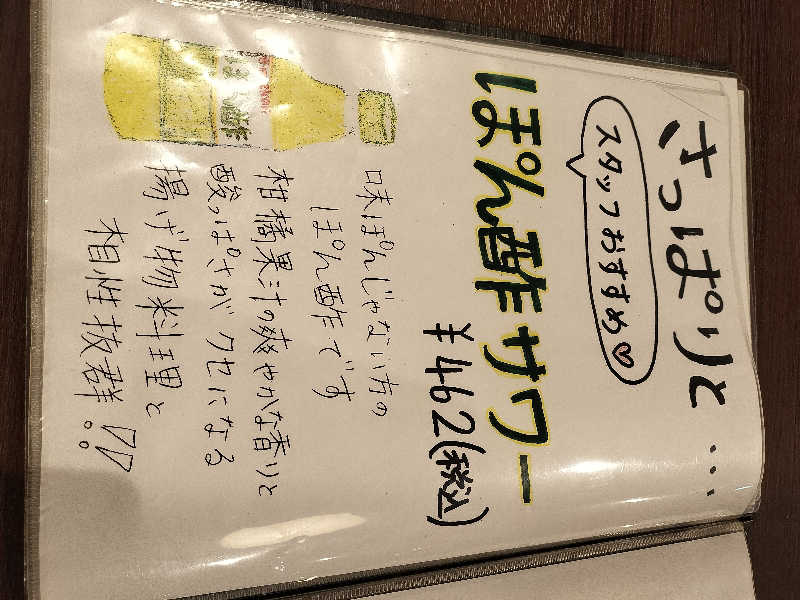 さっぱりと…
スタッフおすすめ♡
ぽん酢サワー
¥462(税込)
味ぽんじゃない方の
ぽん酢です
柑橘果汁の爽やかな香りと
酸っぱさがクセになる
揚げ物料理と
相性抜群!!